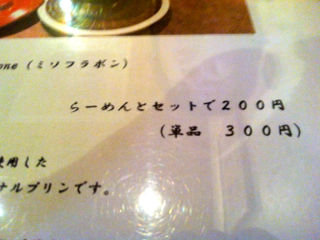 one（ミソフラボン）
らーめんとセットで２００円
（単品　３００円）
使用した
ナルプリンです。